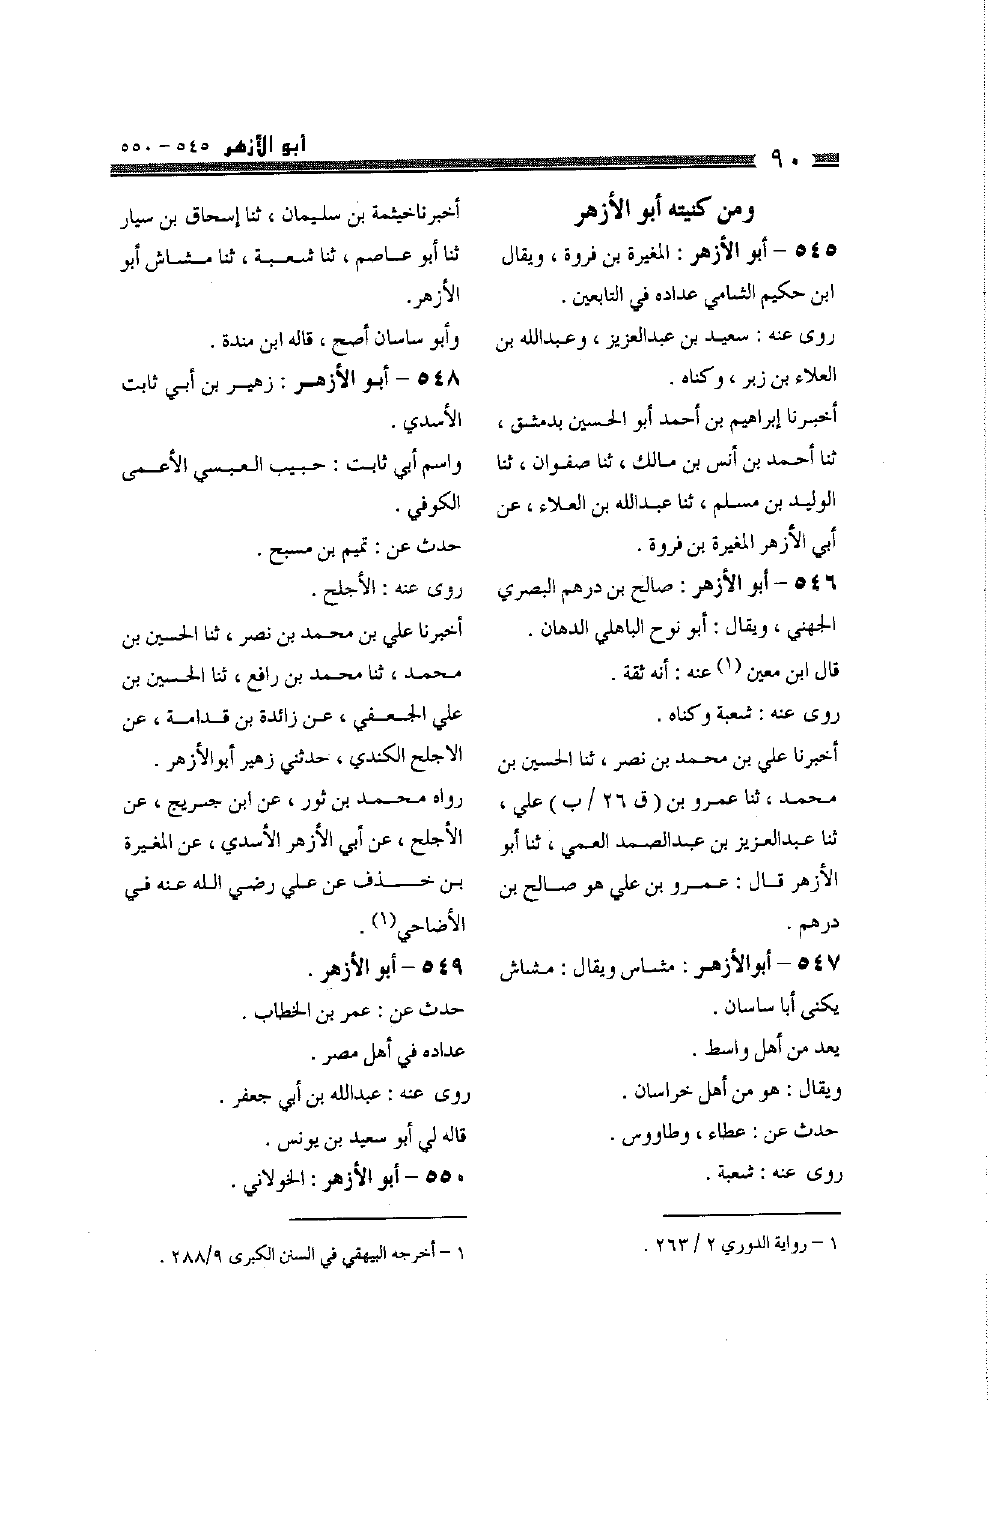 ٩٠
أبو الأزهر ٥٤٥ - ٥٥٠
ومن كنيته أبو الأزهر
٥٤٥ - أبو الأزهر : المغيرة بن فروة ، ويقال
ابن حكيم الشامي عداده في التابعين .
روى عنه : سعيد بن عبدالعزيز ، وعبدالله بن
العلاء بن زبر ، وكناه .
أخبرنا إبراهيم بن أحمد أبو الحسين بدمشق ،
ثنا أحمد بن أنس بن مالك ، ثنا صفوان ، ثنا
الوليد بن مسلم ، ثنا عبدالله بن العلاء ، عن
أبي الأزهر المغيرة بن فروة .
٥٤٦ - أبو الأزهر : صالح بن درهم البصري
الجهني ، ويقال : أبو نوح الباهلي الدهان .
قال ابن معين (١) عنه : أنه ثقة .
روى عنه : شعبة وكناه .
أخبرنا علي بن محمد بن نصر ، ثنا الحسين بن
محمد ، ثنا عمرو بن ( ق ٢٦ / ب ) علي ،
ثنا عبدالعزيز بن عبدالصمد العمي ، ثنا أبو
الأزهر قال : عمرو بن علي هو صالح بن
درهم .
٥٤٧ - أبوالأزهر : مشاس ويقال : مشاش
يكنى أبا ساسان .
يعد من أهل واسط .
ويقال : هو من أهل خراسان .
حدث عن : عطاء ، وطاووس .
روى عنه : شعبة .
١ - رواية الدوري ٢ / ٢٦٣ .
أخبرناخيثمة بن سليمان ، ثنا إسحاق بن سيار
ثنا أبو عاصم ، ثنا شعبة ، ثنا مشاش أبو
الأزهر.
وأبو ساسان أصح ، قاله ابن مندة .
٥٤٨ - أبو الأزهر : زهير بن أبي ثابت
الأسدي .
واسم أبي ثابت : حبيب العبسي الأعمى
الكوفي .
حدث عن : تميم بن مسبح .
روى عنه : الأجلح .
أخبرنا علي بن محمد بن نصر ، ثنا الحسين بن
محمد ، ثنا محمد بن رافع ، ثنا الحسين بن
علي الجعفي ، عن زائدة بن قدامة ، عن
الاجلح الكندي ، حدثني زهير أبوالأزهر .
رواه محمد بن ثور ، عن ابن جريج ، عن
الأجلح ، عن أبي الأزهر الأسدي ، عن المغيرة
بن خذف عن علي رضي الله عنه في
الأضاحي(١) .
٥٤٩ - أبو الأزهر .
حدث عن : عمر بن الخطاب .
عداده في أهل مصر .
روى عنه : عبدالله بن أبي جعفر .
قاله لي أبو سعيد بن يونس .
٥٥٠ - أبو الأزهر : الخولاني .
١ - أخرجه البيهقي في السنن الكبرى ٢٨٨/٩ .